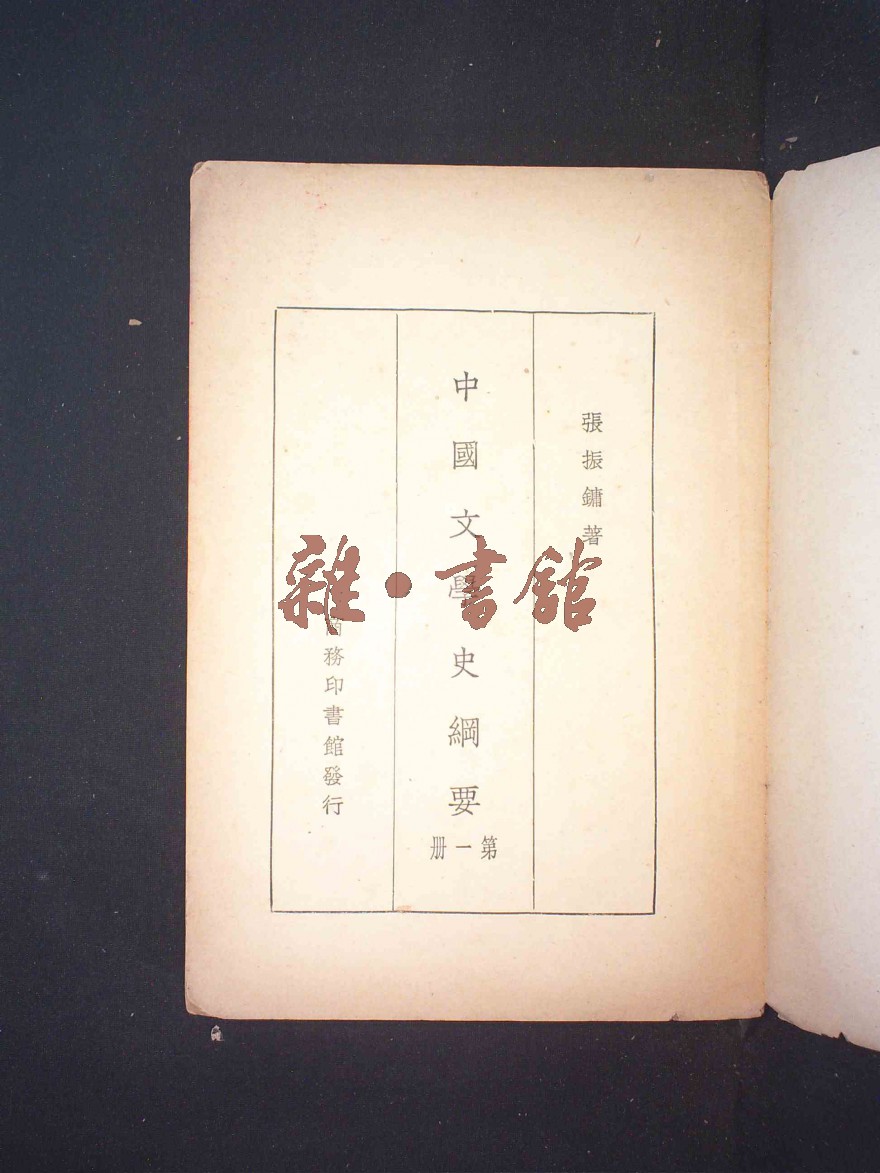 張振鏞著
中國文學史綱要
第一册
商務印書館發行
雜·書館